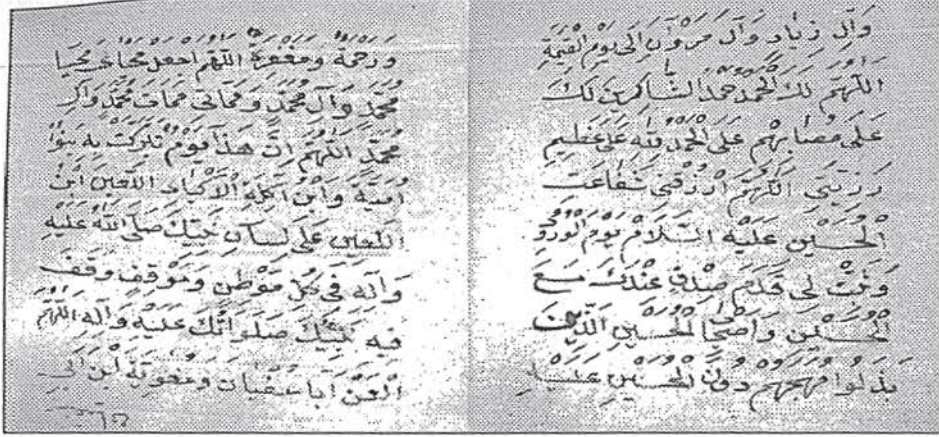 وَآلِ زِيَادٍ وَآلَ مَرْوَانَ اِلَى يَوْمِ الْقِيٰمَةِ
اَللّٰهُمَّ لَكَ الْحَمْدُ حَمْدَ الشَّاكِرِينَ لَكَ
عَلَى مُصَابِهِمْ عَلَى الْحَمْدُ لِلّٰهِ عَلَى عَظِيمِ
رَزِيَّتِى اَللّٰهُمَّ ارْزُقْنِى شَفَاعَتَ
الْحُسَيْنِ عَلَيْهِ السَّلَامُ يَوْمَ الْوُرُودِ
وَثَبِّتْ لِى قَدَمَ صِدْقٍ عِنْدَكَ مَعَ
الْحُسَيْنِ وَاَصْحَابِ الْحُسَيْنِ الَّذِينَ
بَذَلُوا مُهَجَهُمْ دُونَ الْحُسَيْنِ عَلَيْهِ
وَرَحْمَةٌ وَمَغْفِرَةٌ اَللّٰهُمَّ اجْعَلْ مَحْيَاىَ مَحْيَا
مُحَمَّدٍ وَآلِ مُحَمَّدٍ وَمَمَاتِى مَمَاتَ مُحَمَّدٍ وَآلِ
مُحَمَّدٍ اَللّٰهُمَّ اِنَّ هَذَا يَوْمٌ تَبَرَّكَتْ بِهِ بَنُوا
اُمَيَّةَ وَابْنُ آكِلَةِ الْاَكْبَادِ اللَّعِينِ ابْنُ
اللَّعِينِ عَلَى لِسَانِ نَبِيِّكَ صَلَّى اللّٰهُ عَلَيْهِ
وَآلِهِ فِى كُلِّ مَوْطِنٍ وَمَوْقِفٍ وَقَفَ
فِيهِ نَبِيُّكَ صَلَوَاتُكَ عَلَيْهِ وَآلِهِ اَللّٰهُمَّ
الْعَنْ اَبَا سُفْيَانَ وَمُعٰوِيَةَ